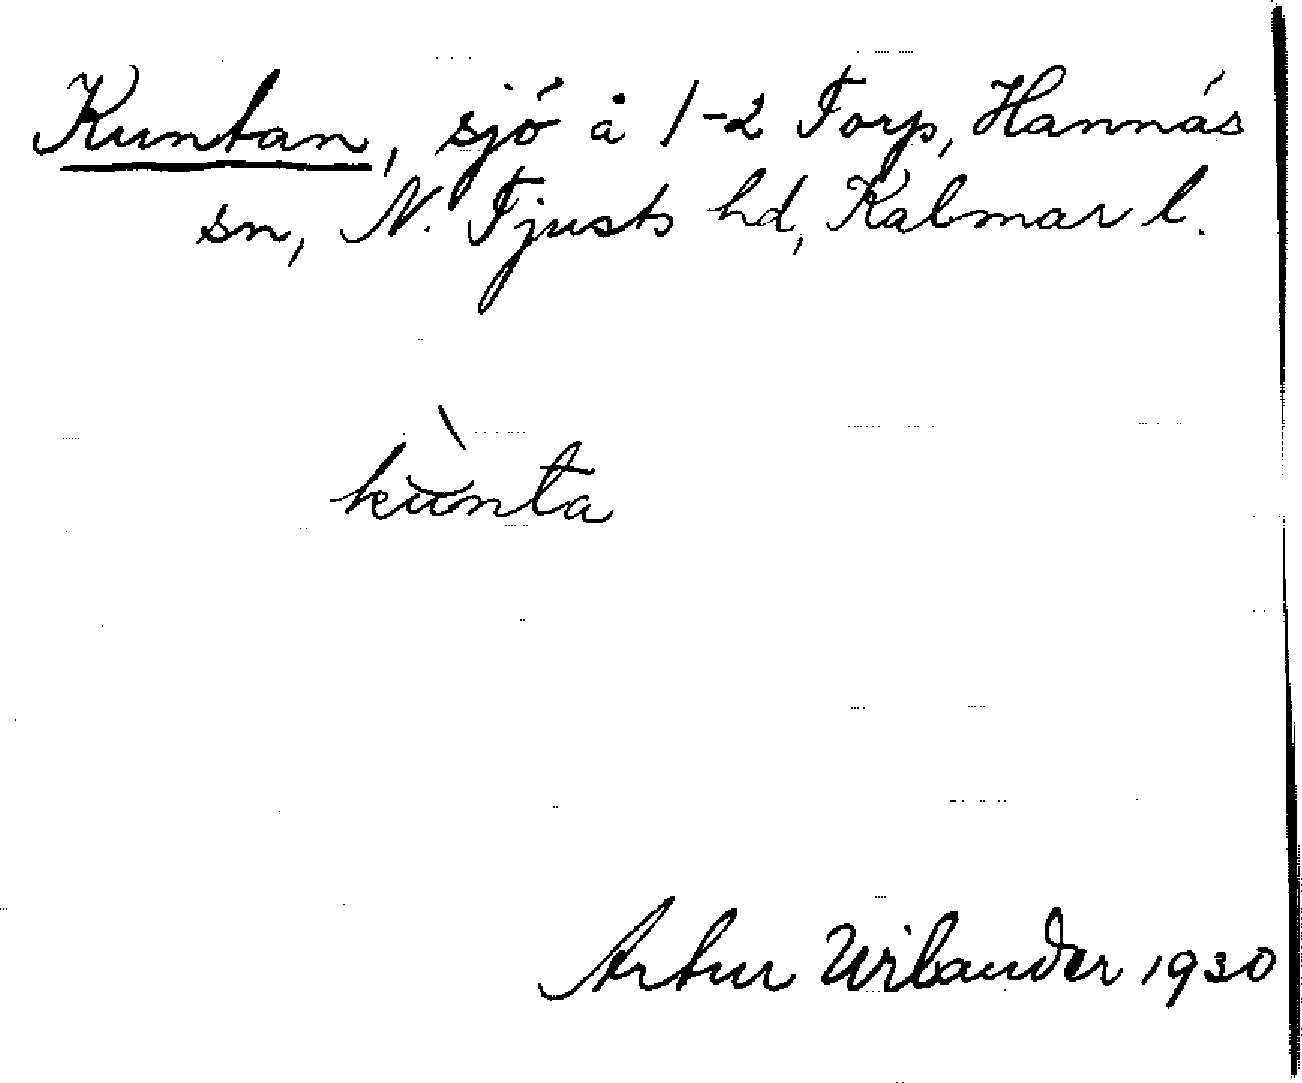 Kuntan, sjö å 1-2 Torp, Hannäs
sn, N. Tjusts hd, Kalmar l.
kùnta
Artur Wilander 1930